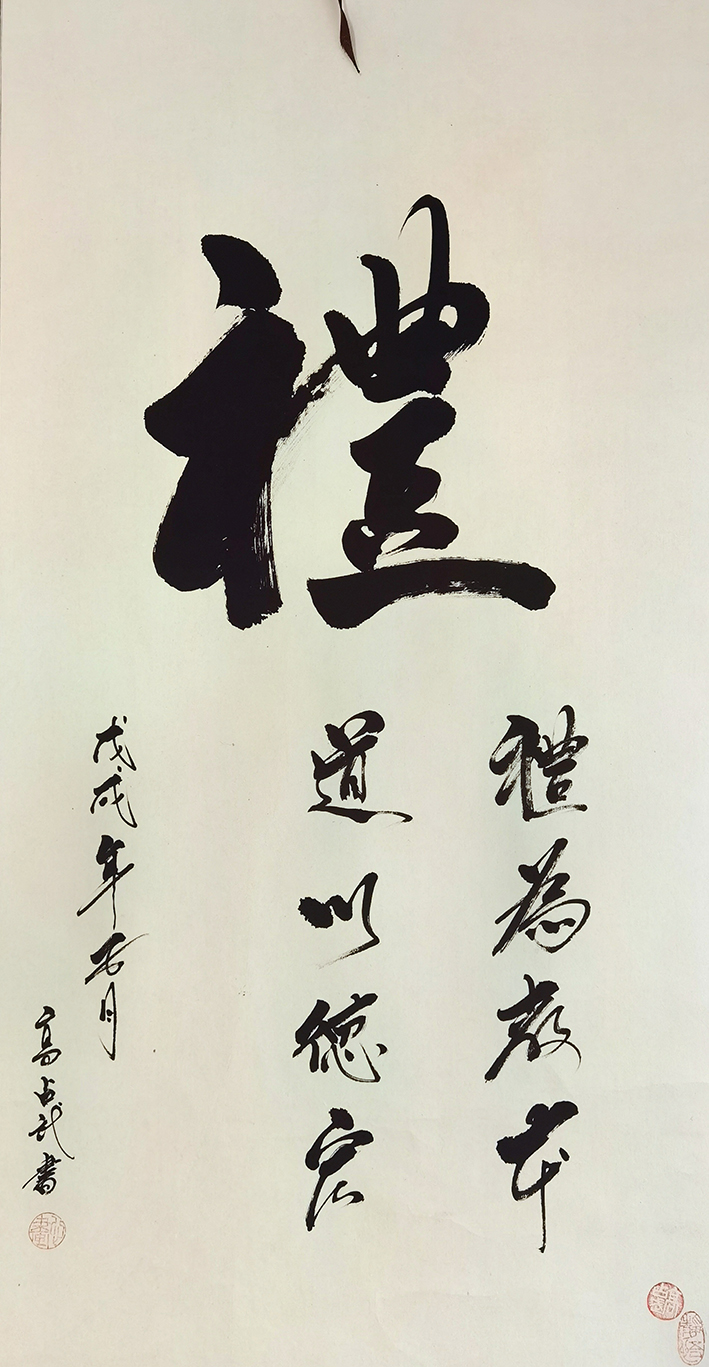 禮
禮為教本
道以德宏
戊戌年五月
高占武書